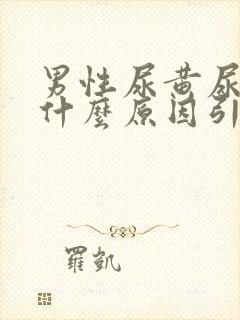 男性尿黄尿
什麼原因引
羅凱